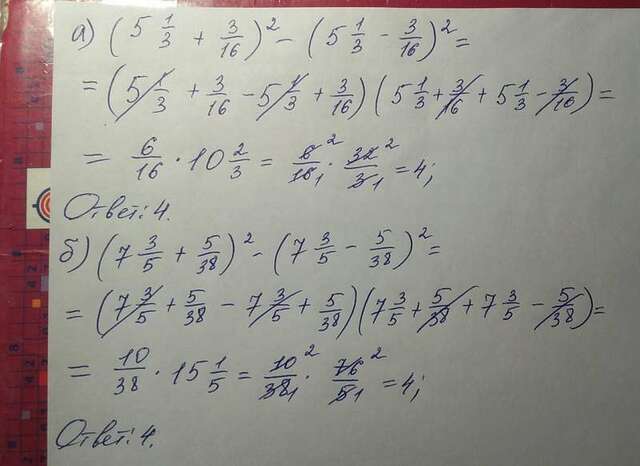 а) (5 1/3 + 3/16)² − (5 1/3 − 3/16)² =
= (5 1/3 + 3/16 − 5 1/3 + 3/16)(5 1/3 + 3/16 + 5 1/3 − 3/16) =
= 6/16 · 10 2/3 = 6²/16₁ · 32²/3₁ = 4;
Ответ: 4.
б) (7 3/5 + 5/38)² − (7 3/5 − 5/38)² =
= (7 3/5 + 5/38 − 7 3/5 + 5/38)(7 3/5 + 5/38 + 7 3/5 − 5/38) =
= 10/38 · 15 1/5 = 10²/38₁ · 76²/5₁ = 4;
Ответ: 4.